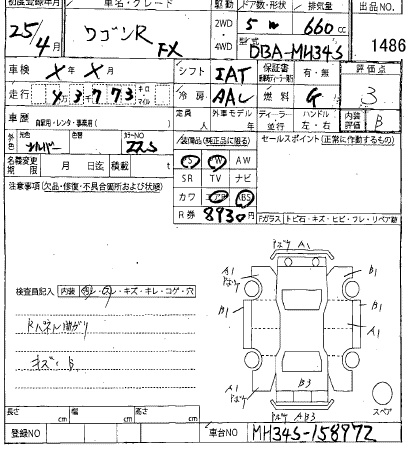 初度登録年月 車名・グレード 駆動 ドア数・形状 排気量 出品NO
25/4月 ワゴンR FX 2WD 4WD 5 W 660cc 1486
型式 DBA-MH34S
車検 X年 X月 シフト IAT 保証書 有・無 評価点
走行 X万3千773 キロ マイル 冷房 AAC 燃料 G 3
車歴 自家用・レンタ・事業用( ) 定員 人 外車モデル ディーラー 並行 ハンドル 左・右 内装評価 B
外色 元色 シルバー 色替 カラーNO Z2S
装備品(純正品に限る) セールスポイント(正常に作動するもの)
名義変更期限 月 日迄 積載 t
PS PW AW
SR TV ナビ
カワ エアB ABS
R券 8930円
注意事項(欠品・修復・不具合箇所および状態)
Fガラス トビ石・キズ・ヒビ・フレ・リペア跡
検査員記入 内装 汚レ・スレ・キズ・キレ・コゲ・穴
キズ・B
A1
A1
B1
B1
B1
A1
A1
B3
B1
AB3
スペア
長さ cm 幅 cm 高さ cm
登録NO 車台NO MH34S-158972